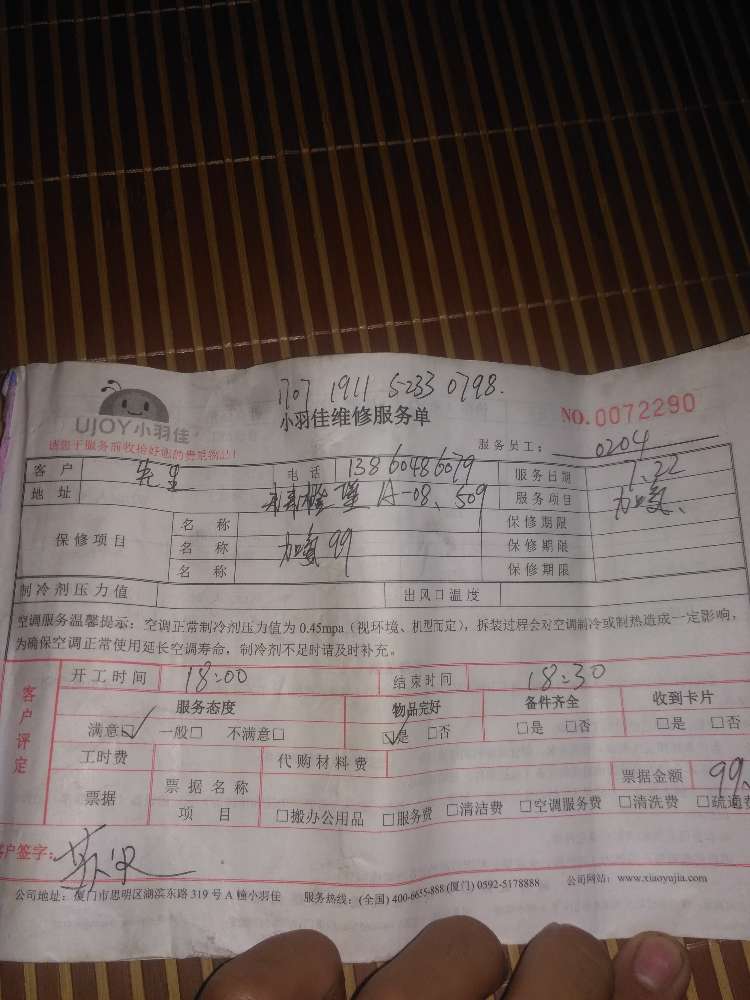 1707 1911 5233 0798.
UJOY小羽佳
小羽佳维修服务单
NO.0072290
请您于服务前收拾好您的贵重物品!
服务员工: 0204
客户 先生 电话 13860486079 服务日期 7.22
地址 橙堡 A-08、509 服务项目 加氨、
保修项目 名称 保修期限
名称 加氨 99 保修期限
名称 保修期限
制冷剂压力值 出风口温度
空调服务温馨提示:空调正常制冷剂压力值为 0.45mpa (视环境、机型而定),拆装过程会对空调制冷或制热造成一定影响,
为确保空调正常使用延长空调寿命,制冷剂不足时请及时补充。
客户评定
开工时间 18:00 结束时间 18:30
服务态度 物品完好 备件齐全 收到卡片
满意☑ 一般□ 不满意□ ☑是 □否 □是 □否 □是 □否
工时费 代购材料费
票据 票据名称 票据金额 99、
项目 □搬办公用品 □服务费 □清洁费 □空调服务费 □清洗费 □疏通费
客户签字:
公司地址:厦门市思明区湖滨东路 319 号 A 幢小羽佳 服务热线:(全国) 400-6655-888 (厦门) 0592-5178888 公司网站:www.xiaoyujia.com